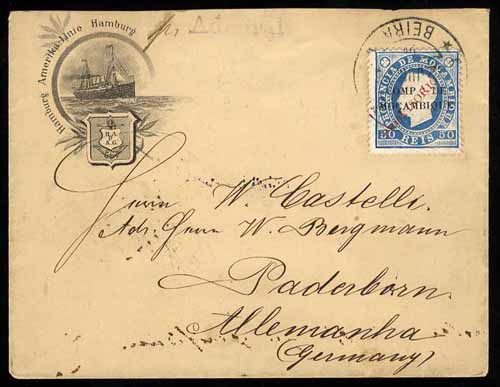 Hamburg Amerika-Linie Hamburg
per Admiral
BEIRA
PROVINCIA DE MOÇAMBIQUE
COMP. DE
MOÇAMBIQUE
50 REIS 50
H.A.
A.G.
Herrn W. Castelli.
Adr. Herrn W. Bergmann
Paderborn
Allemanha
(Germany)